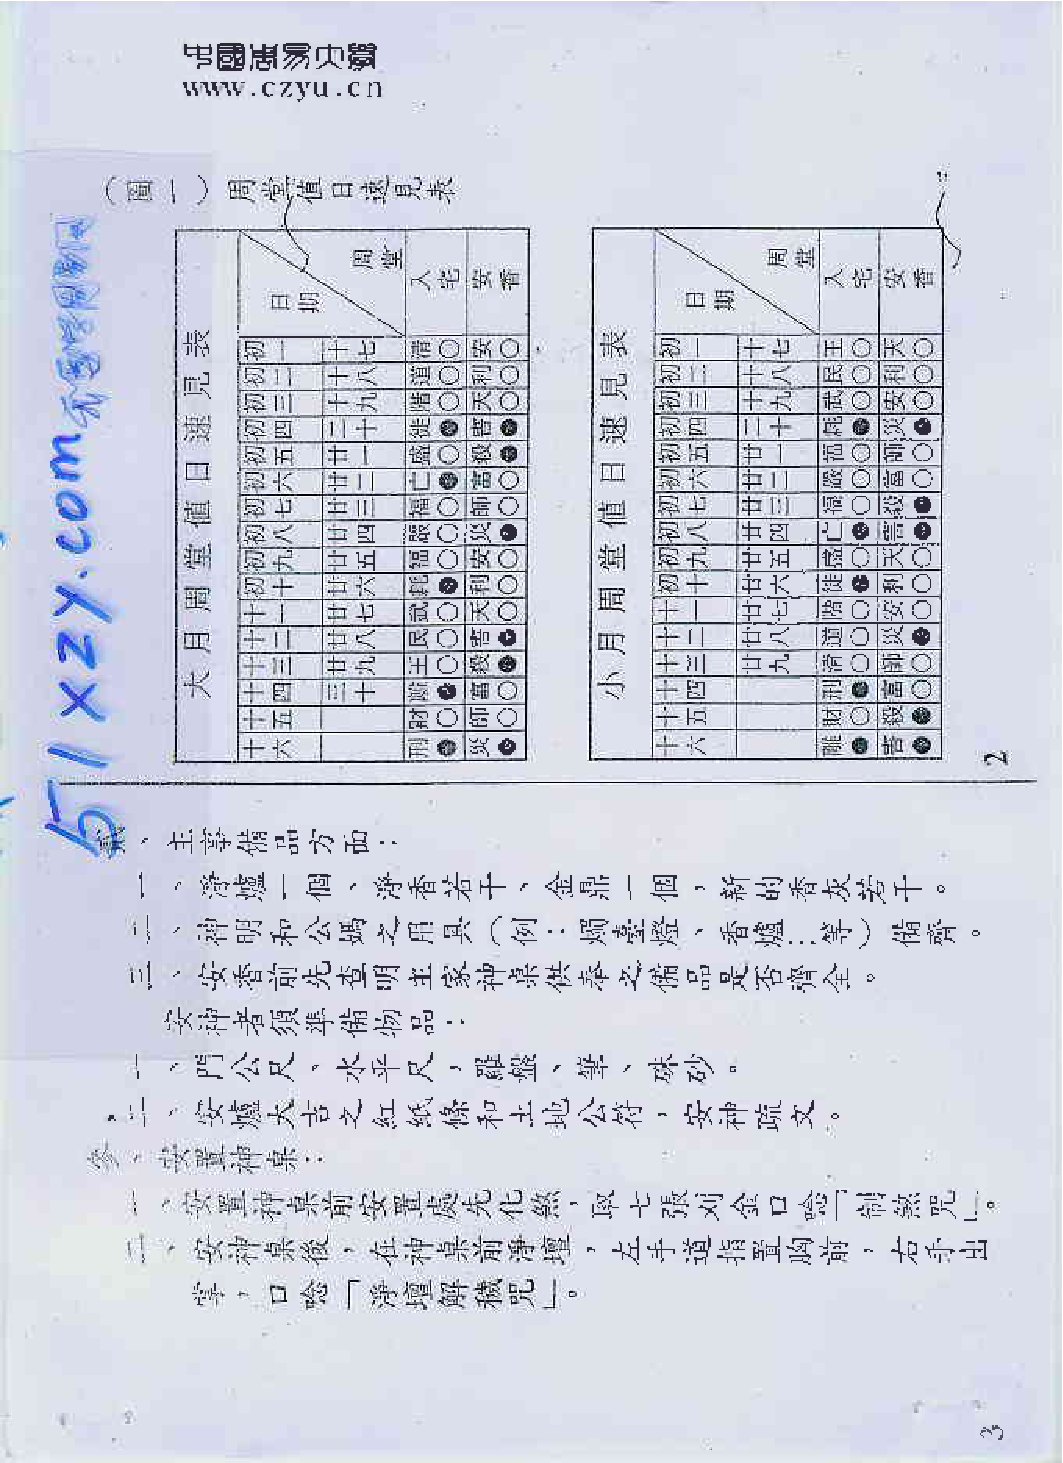 中國周易大學
www.czyu.cn
(圖一)周堂值日速見表
大月周堂值日速見表
日期 周堂 入宅 安香
初一 十七 清○ 安○
初二 十八 道○ 利○
初三 十九 階○ 天○
初四 二十 徙● 害●
初五 廿一 盛○ 殺●
初六 廿二 亡● 富○
初七 廿三 福○ 師○
初八 廿四 嚴○ 災●
初九 廿五 福○ 安○
初十 廿六 耗● 利○
十一 廿七 武○ 天○
十二 廿八 民○ 害●
十三 廿九 王○ 殺●
十四 三十 離● 富○
十五 財○ 師○
十六 刑● 災●
小月周堂值日速見表
日期 周堂 入宅 安香
初一 十七 王○ 天○
初二 十八 民○ 利○
初三 十九 武○ 安○
初四 二十 耗● 災●
初五 廿一 福○ 師○
初六 廿二 嚴○ 富○
初七 廿三 福○ 殺●
初八 廿四 亡● 害●
初九 廿五 盛○ 天○
初十 廿六 徙● 利○
十一 廿七 階○ 安○
十二 廿八 道○ 災●
十三 廿九 清○ 師○
十四 刑● 富○
十五 財○ 殺●
十六 離● 害●
2
511xzy.com
、主事備品方面:
一、淨爐一個、淨香若干、金鼎一個,新的香灰若干。
二、神明和公媽之用具(例:燭臺燈、香爐…等)備齊。
三、安香前先查明主家神桌供奉之備品是否齊全。
安神者須準備物品:
一、門公尺、水平尺,羅盤、筆、硃砂。
二、安爐大吉之紅紙條和土地公符,安神疏文。
參、安置神桌:
一、安置神桌前安置處先化煞,取七張刈金口唸「制煞咒」。
二、安神桌後,在神桌前淨壇,左手道指置胸前,右手出
掌,口唸「淨壇解穢咒」。
3